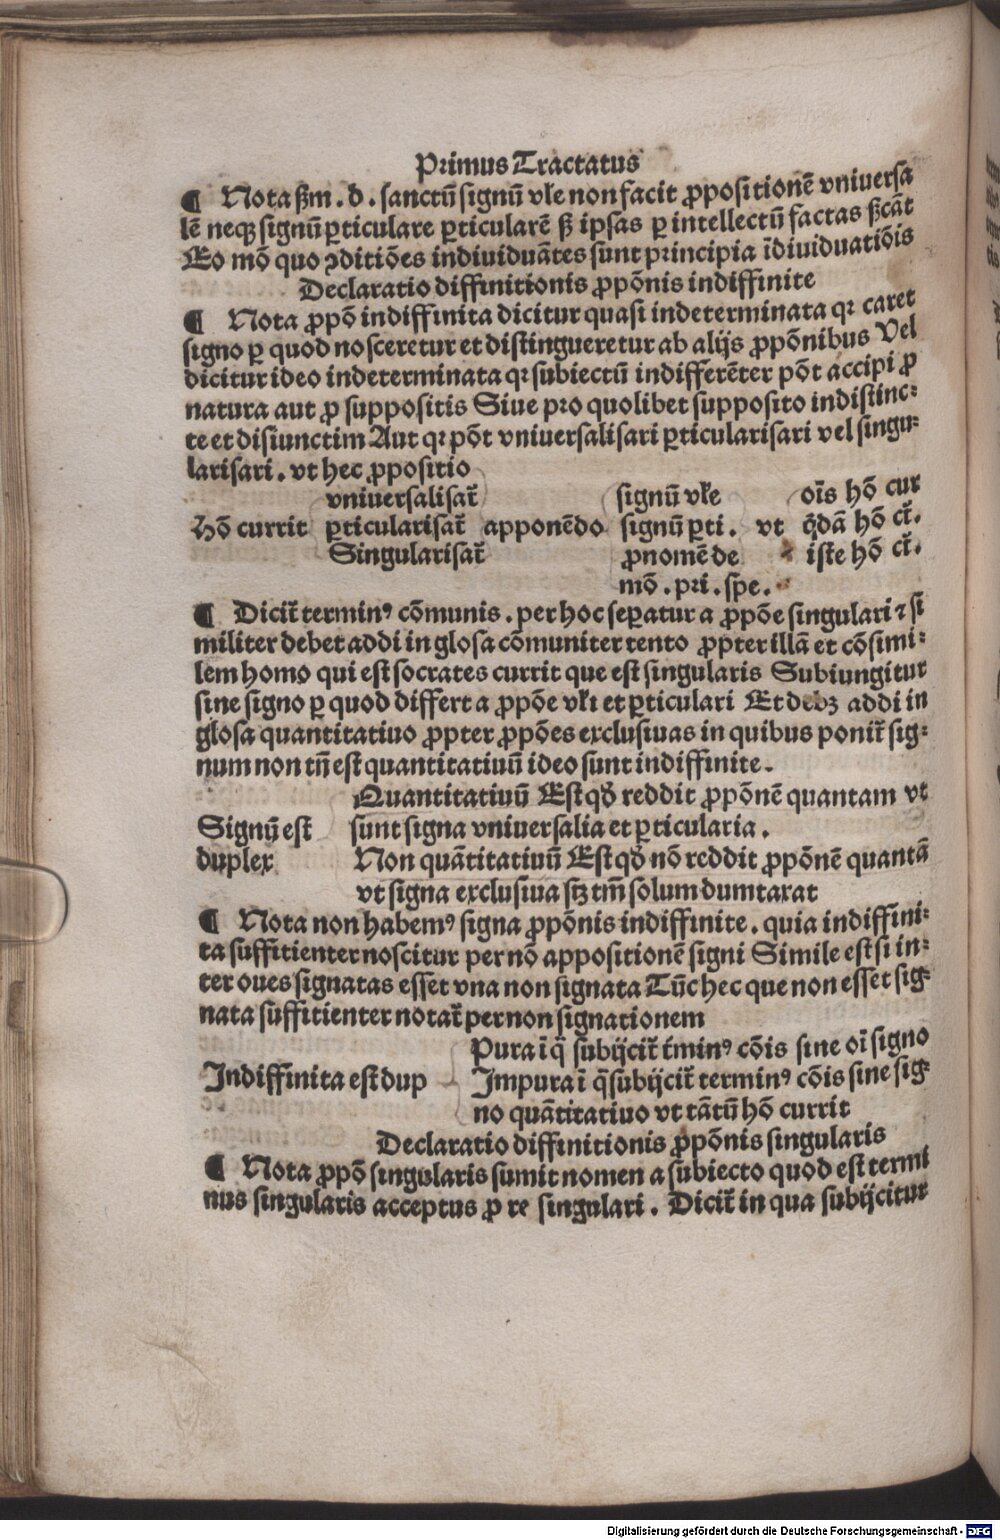 Primus Tractatus
¶ Nota ßm . d . sanctū signū vl̄e non facit ꝓpositionē vniuersa
lē neqꝫ signū ꝑticulare ꝑticularē sꝫ ipsas ꝑ intellectū factas sꝫcāt
Eo mō quo ꝯditiōes indiuiduātes sunt principia īdiuiduatiōis
Declaratio diffinitionis ꝓpōnis indiffinite
¶ Nota ꝓpō indiffinita dicitur quasi indeterminata qꝛ caret
signo ꝑ quod nosceretur et distingueretur ab alijs ꝓpōnibus Vel
dicitur ideo indeterminata qꝛ subiectū indifferēter pōt accipi ꝓ
natura aut ꝓ suppositis Siue pro quolibet supposito indistinc-
te et disiunctim Aut qꝛ pōt vniuersalisari ꝑticularisari vel singu-
larisari . vt hec ꝓpositio
vniuersalisar̄ signū vl̄e oīs hō cur
Hō currit ꝑticularisar̄ apponēdo signū ꝑti . vt q̄dā hō cr̄.
Singularisar̄ ꝓnomē de iste hō cr̄.
mō . pri . spe .
¶ Dicit̄ terminꝰ cōmunis . per hoc seꝑatur a ꝓpōe singulari ⁊ si
militer debet addi in glosa cōmuniter tento ꝓpter illā et cōsimi-
lem homo qui est socrates currit que est singularis Subiungitur
sine signo ꝑ quod differt a ꝓpōe vl̄i et ꝑticulari Et debꝫ addi in
glosa quantitatiuo ꝓpter ꝓpōes exclusiuas in quibus ponit̄ sig-
num non tn̄ est quantitatiuū ideo sunt indiffinite .
Quantitatiuū Est qd̄ reddit ꝓpōnē quantam vt
Signū est sunt signa vniuersalia et ꝑticularia .
duplex Non quātitatiuū Est qd̄ nō reddit ꝓpōnē quantā
vt signa exclusiua sꝫ tm̄ solum dumtaxat
¶ Nota non habemꝰ signa ꝓpōnis indiffinite . quia indiffini-
ta suffitienter noscitur per nō appositionē signi Simile est si in-
ter oues signatas esset vna non signata Tūc hec que non esset sig-
nata suffitienter notat̄ per non signationem
Pura ī q̄ subijcit̄ t̄minꝰ cōis sine oī signo
Indiffinita est dup Impura ī q̄ subijcit̄ terminꝰ cōis sine sig-
no quātitatiuo vt tātū hō currit
Declaratio diffinitionis ꝓpōnis singularis
¶ Nota ꝓpō singularis sumit nomen a subiecto quod est termi
nus singularis acceptus ꝓ re singulari . Dicit̄ in qua subijcitur
Digitalisierung gefördert durch die Deutsche Forschungsgemeinschaft - DFG